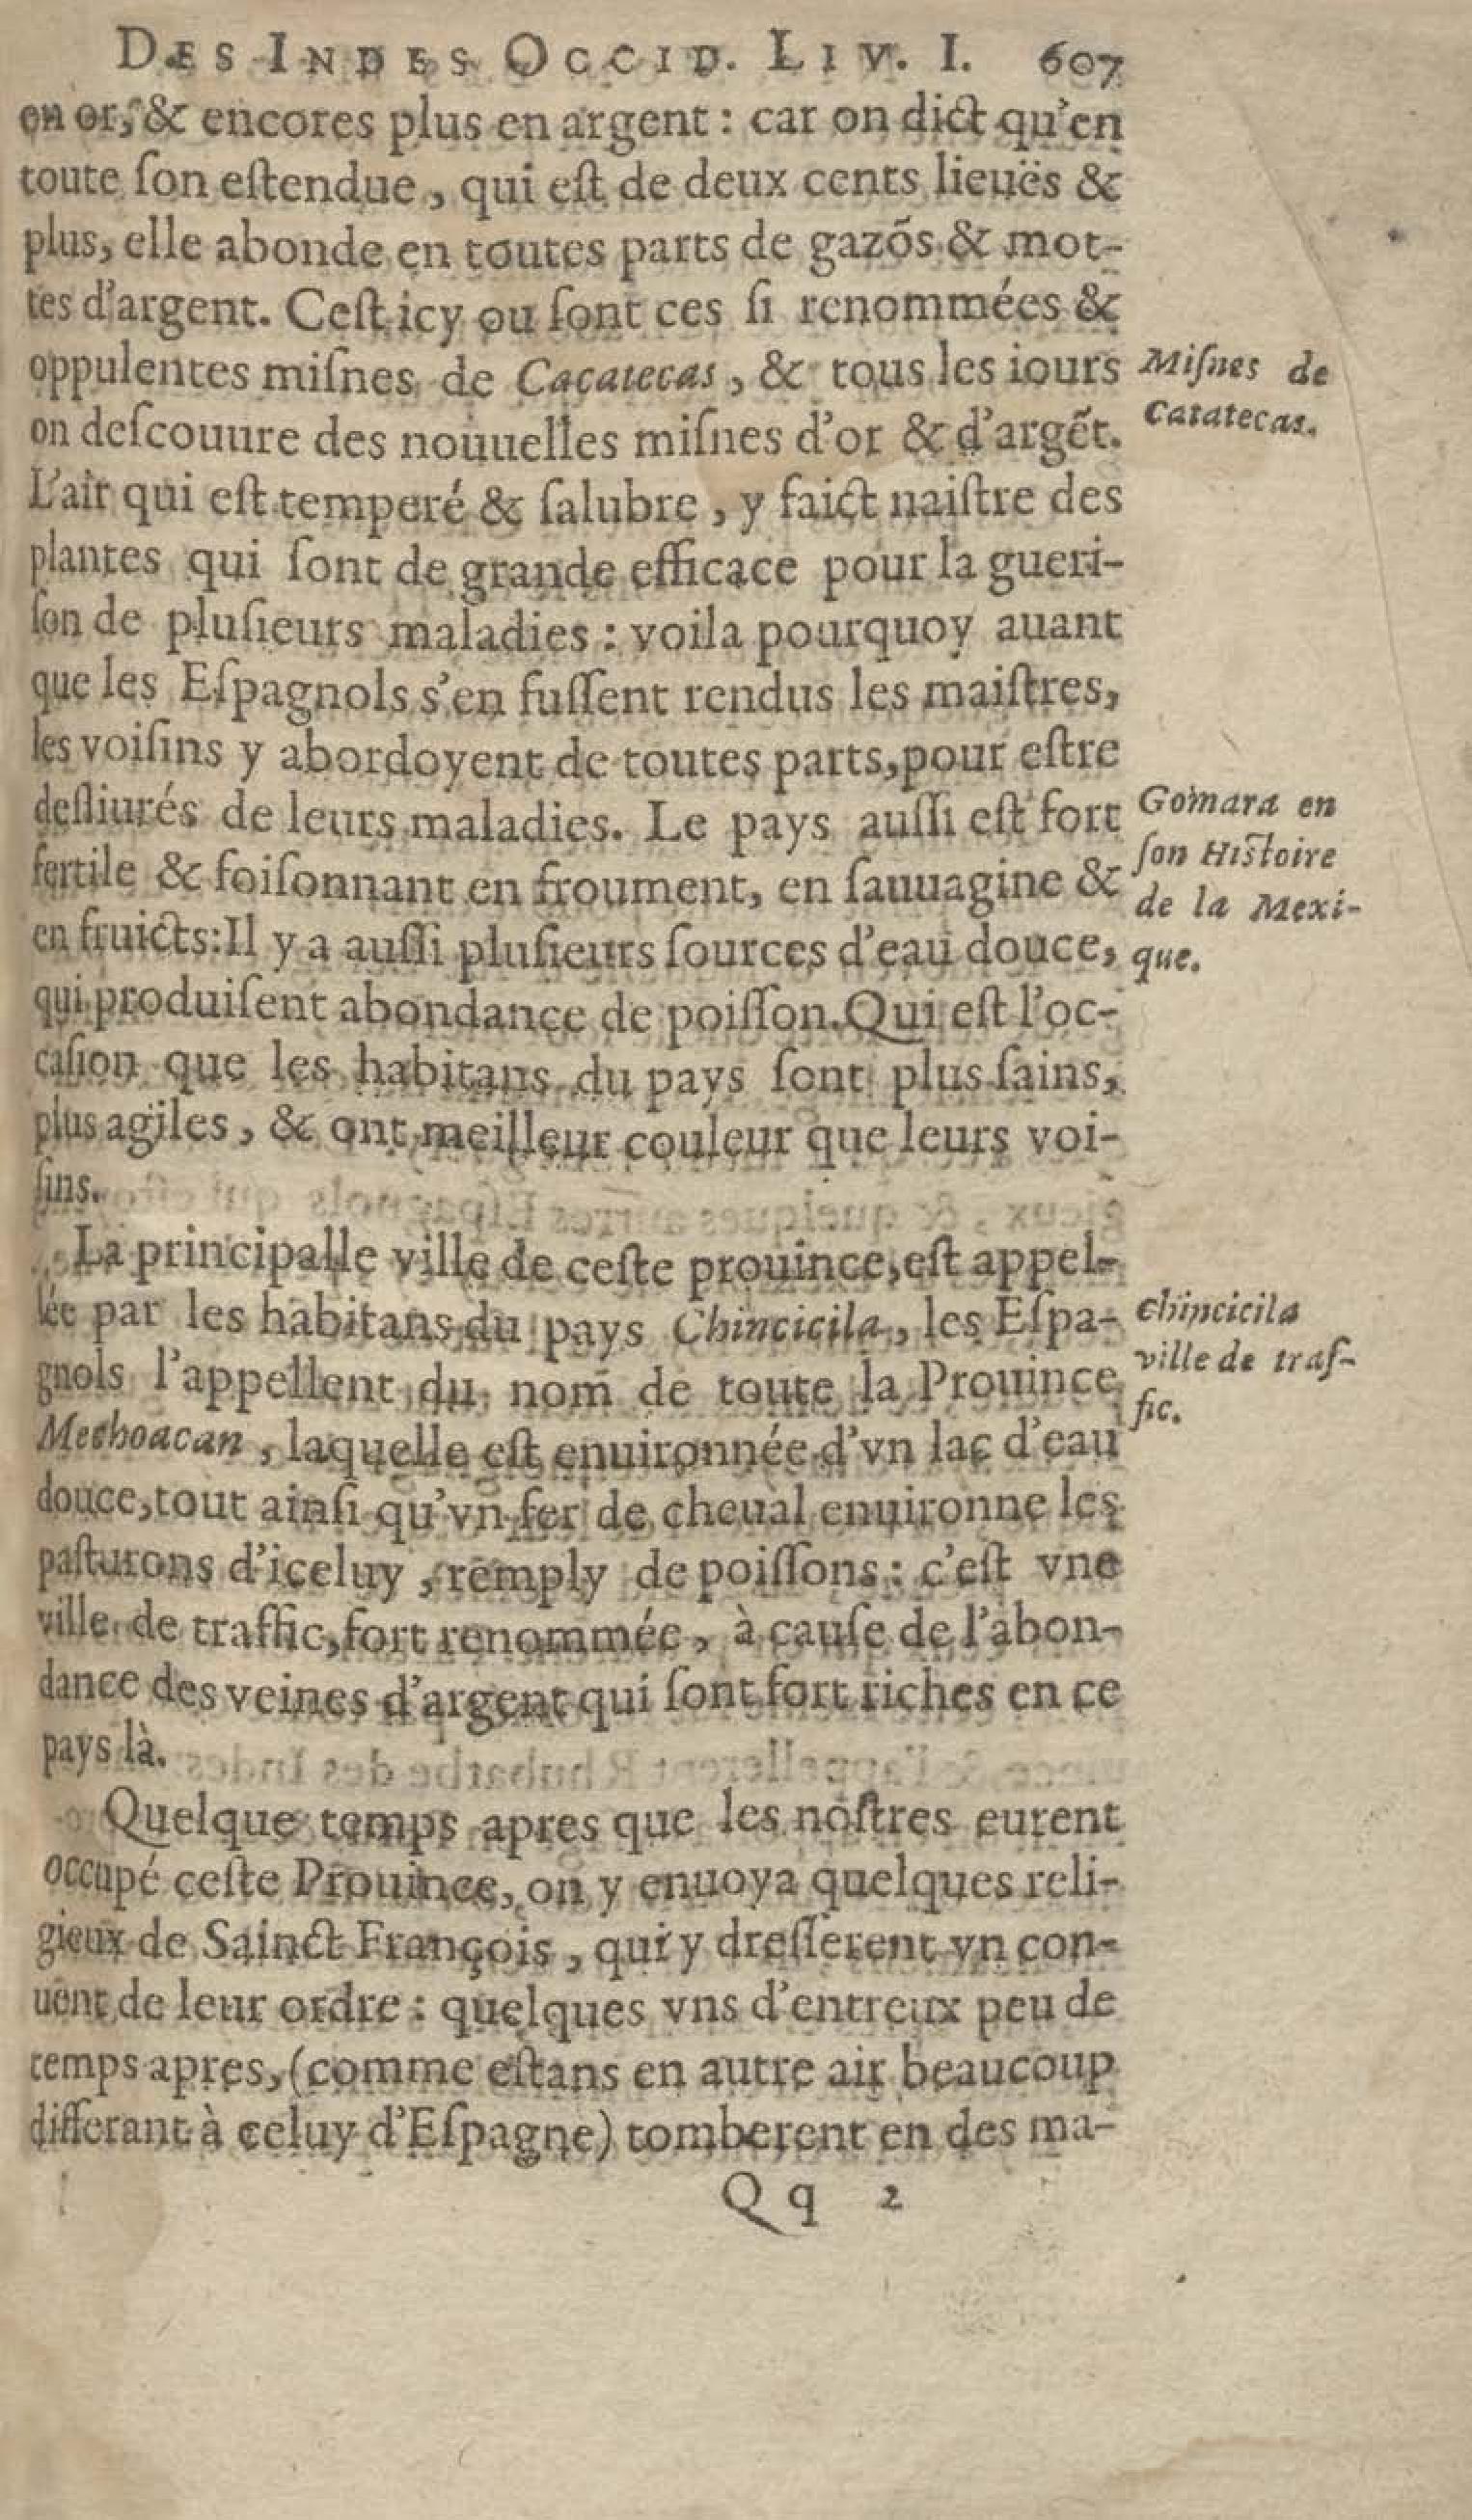 DES INDES OCCID. LIV. I. 607
en or, & encores plus en argent : car on dict qu'en
toute ſon eſtendue, qui eſt de deux cents lieuës &
plus, elle abonde en toutes parts de gazõs & mot-
tes d'argent. Ceſt icy ou ſont ces ſi renommées &
oppulentes miſnes de Cacatecas, & tous les iours
on deſcouure des nouuelles miſnes d'or & d'argẽt.
L'air qui eſt temperé & ſalubre, y faict naiſtre des
plantes qui ſont de grande efficace pour la gueri-
ſon de pluſieurs maladies : voila pourquoy auant
que les Eſpagnols s'en fuſſent rendus les maiſtres,
les voiſins y abordoyent de toutes parts, pour eſtre
deſliurés de leurs maladies. Le pays auſſi eſt fort
fertile & foiſonnant en froument, en ſauuagine &
en fruicts: Il y a auſſi pluſieurs ſources d'eau douce,
qui produiſent abondance de poiſſon. Qui eſt l'oc-
caſion que les habitans du pays ſont plus ſains,
plus agiles, & ont meilleur couleur que leurs voi-
ſins.
La principalle ville de ceſte prouince, eſt appel-
lée par les habitans du pays Chincicila, les Eſpa-
gnols l'appellent du nom de toute la Prouince
Mechoacan, laquelle eſt enuironnée d'vn lac d'eau
douce, tout ainſi qu'vn fer de cheual enuironne les
paſturons d'iceluy, remply de poiſſons : c'eſt vne
ville de traffic, fort renommée, à cauſe de l'abon-
dance des veines d'argent qui ſont fort riches en ce
pays là.
Quelque temps apres que les noſtres eurent
occupé ceſte Prouince, on y enuoya quelques reli-
gieux de Sainct François, qui y dreſſerent vn con-
uent de leur ordre : quelques vns d'entreux peu de
temps apres, (comme eſtans en autre air beaucoup
differant à celuy d'Eſpagne) tomberent en des ma-
Qq 2
Miſnes de
Catatecas.
Gomara en
ſon Hiſtoire
de la Mexi-
que.
Chincicila
ville de traf-
fic.